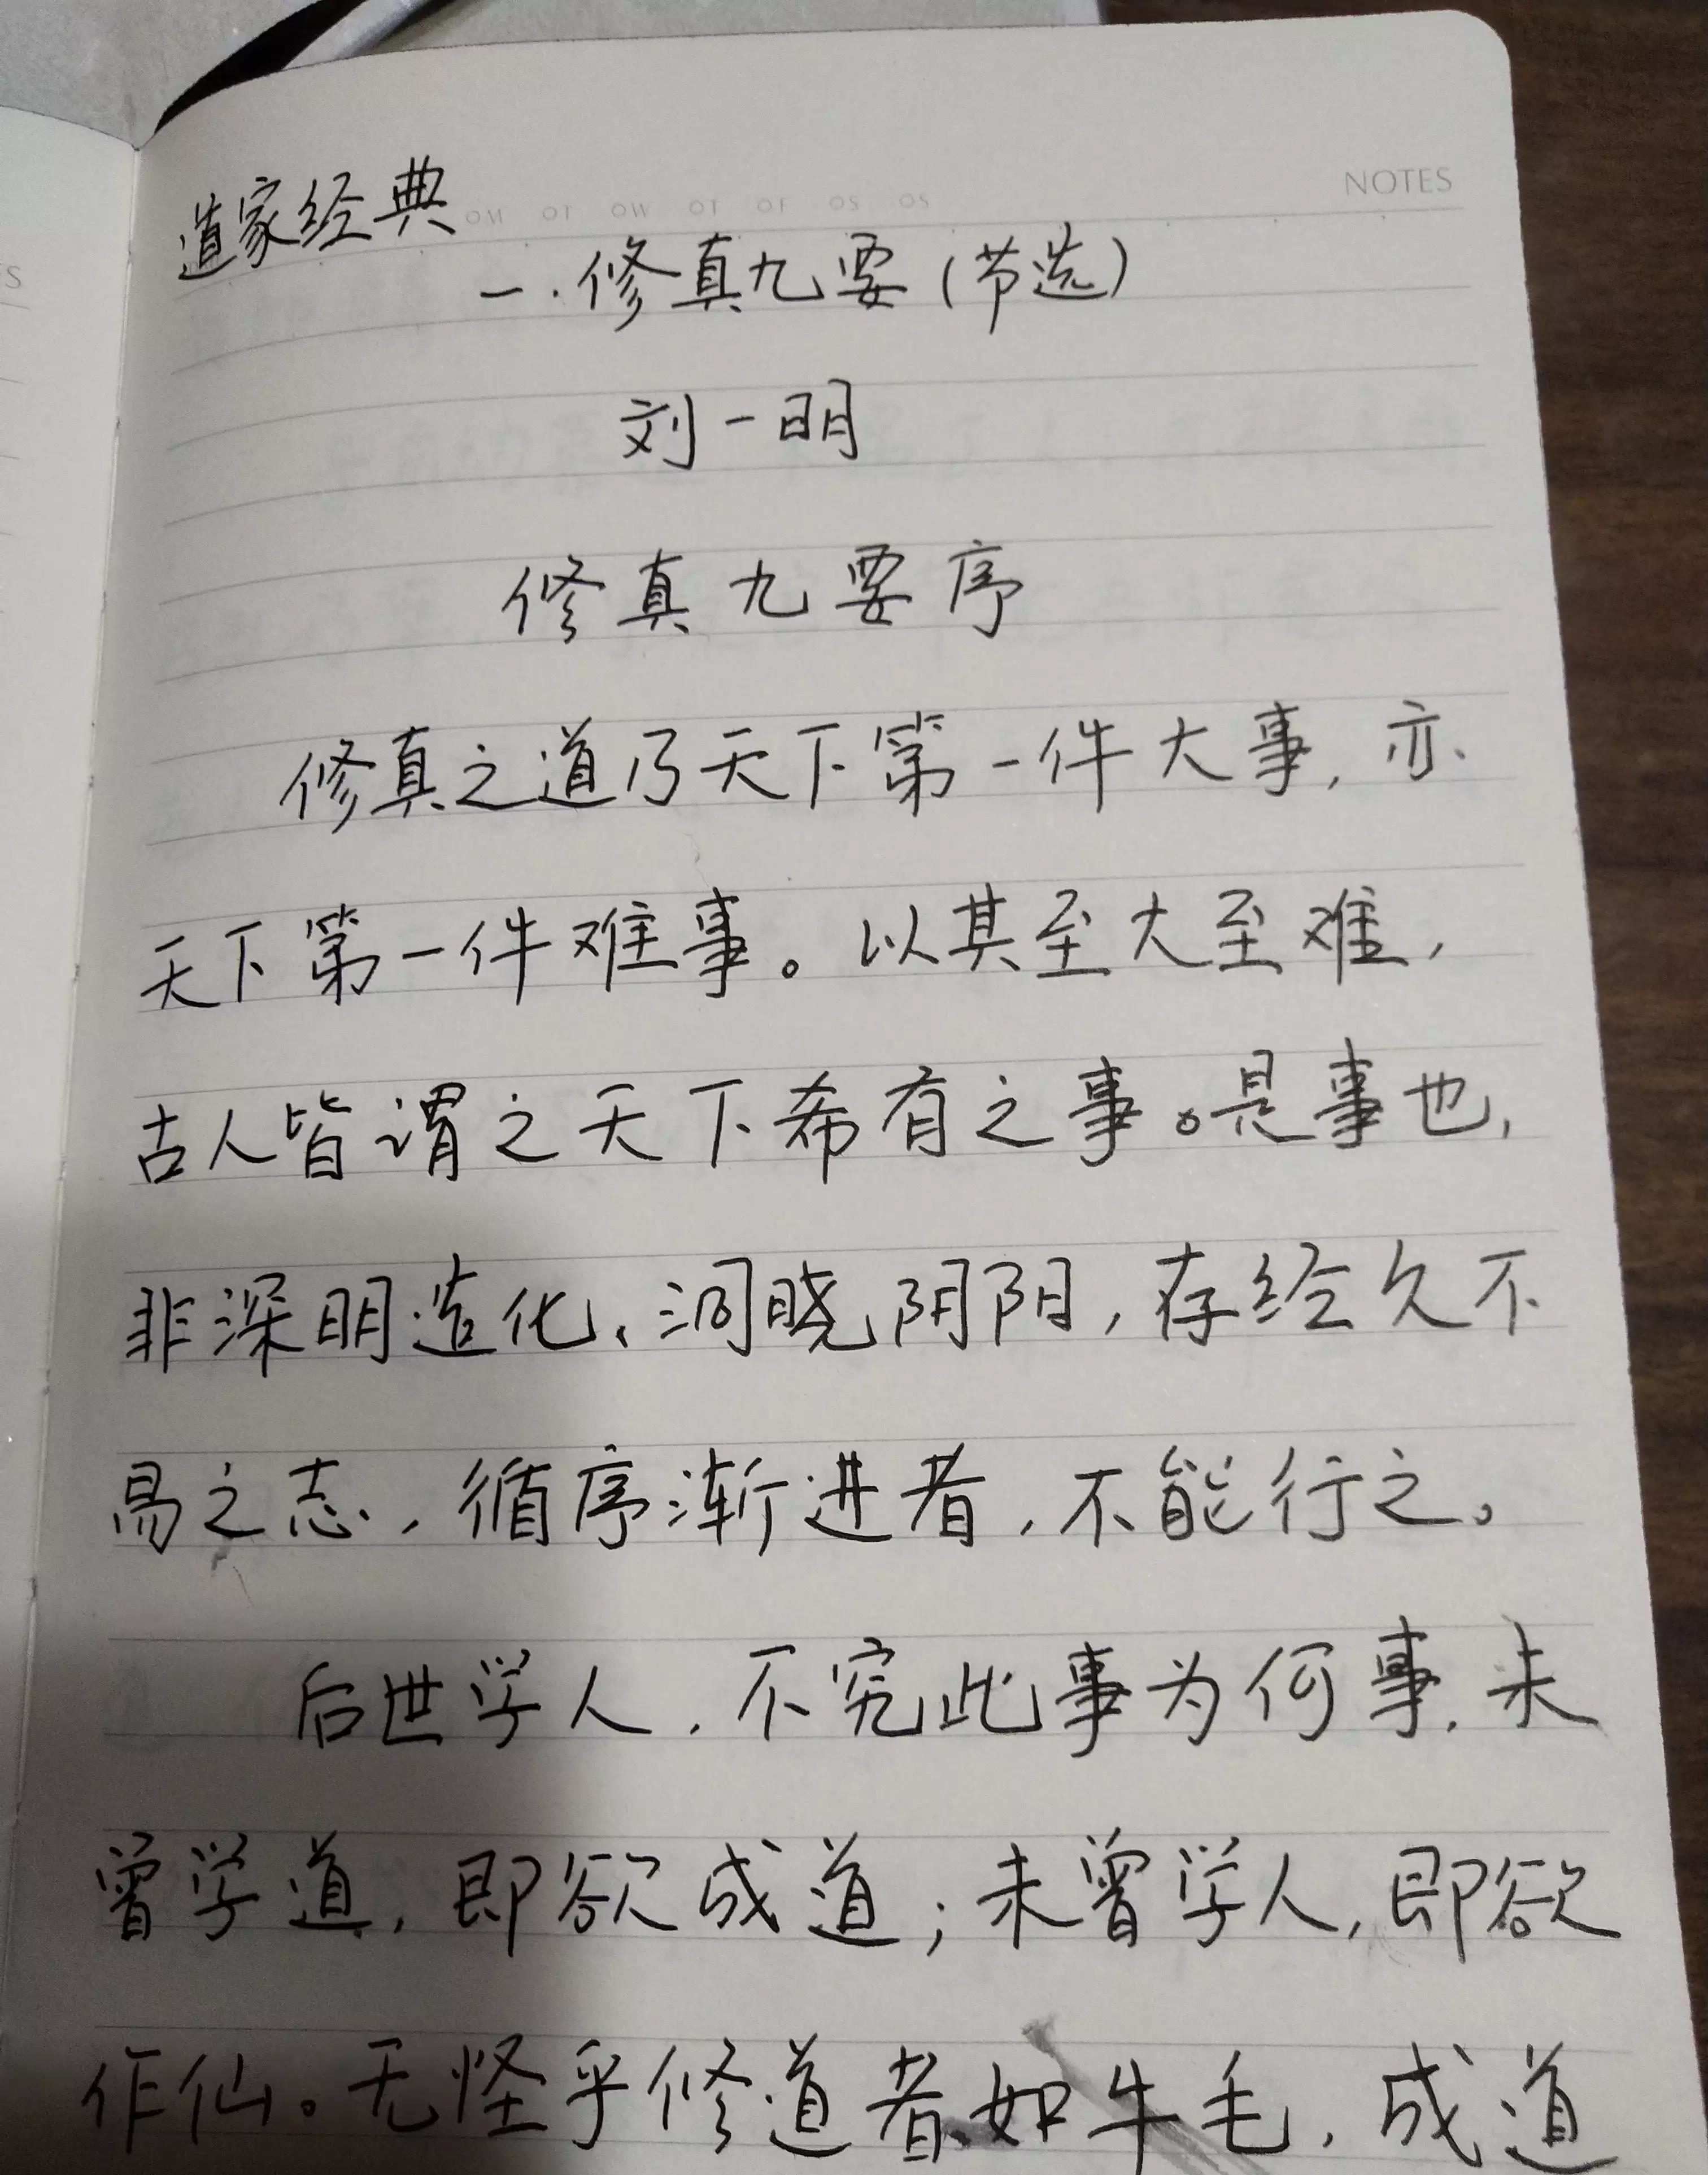 道家经典
NOTES
OM OT OW OT OF OS OS
一.修真九要(节选)
刘一明
修真九要序
修真之道乃天下第一件大事,亦
天下第一件难事。以其至大至难,
古人皆谓之天下希有之事。是事也,
非深明造化、洞晓阴阳,存经久不
易之志,循序渐进者,不能行之。
后世学人,不究此事为何事,未
曾学道,即欲成道;未曾学人,即欲
作仙。无怪乎修道者如牛毛,成道